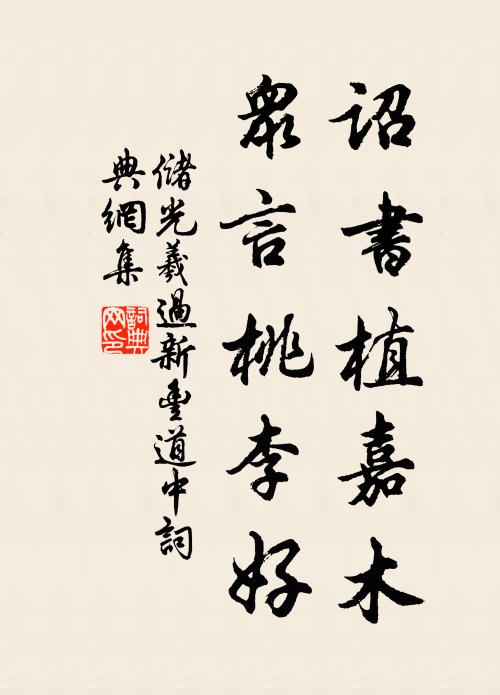 詔書植嘉木
眾言桃李好
儲光羲過新豐道中詞
典網集
詞典
网印